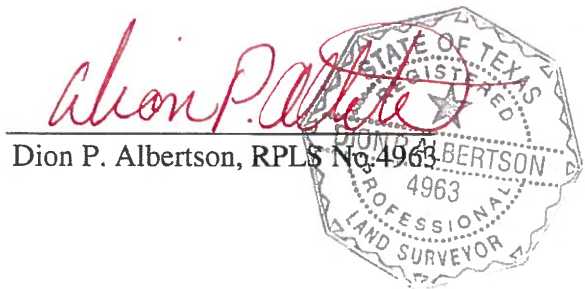 Dion P. Albertson
Dion P. Albertson, RPLS No.4963
STATE OF TEXAS
REGISTERED
DION P. ALBERTSON
4963
PROFESSIONAL
LAND SURVEYOR